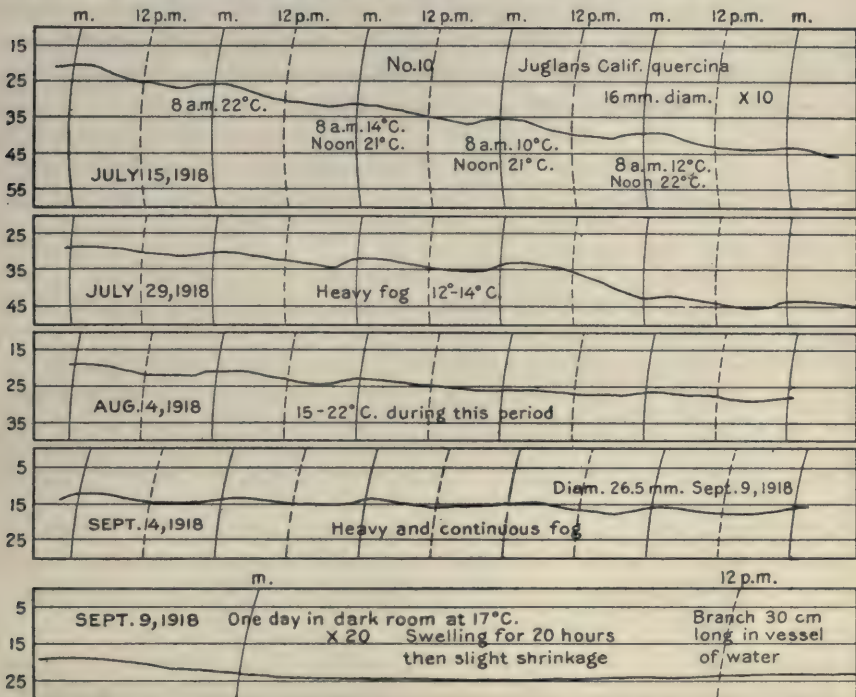 m. 12 p.m. m. 12 p.m. m. 12 p.m. m. 12 p.m. m. 12 p.m. m.
15
No.10 Juglans Calif. quercina
25
16 mm. diam. X 10
8 a.m. 22°C.
35
8 a.m. 14°C.
Noon 21°C.
8 a.m. 10°C.
Noon 21°C.
45
8 a.m. 12°C.
Noon 22°C.
JULY 15, 1918
55
25
35
JULY 29, 1918 Heavy fog 12°-14°C.
45
15
25
AUG. 14, 1918 15-22°C. during this period
35
5
Diam. 26.5 mm. Sept. 9, 1918
15
SEPT. 14, 1918 Heavy and continuous fog
25
m. 12 p.m.
5
SEPT. 9, 1918 One day in dark room at 17°C.
X 20 Swelling for 20 hours
then slight shrinkage
Branch 30 cm
long in vessel
of water
15
25